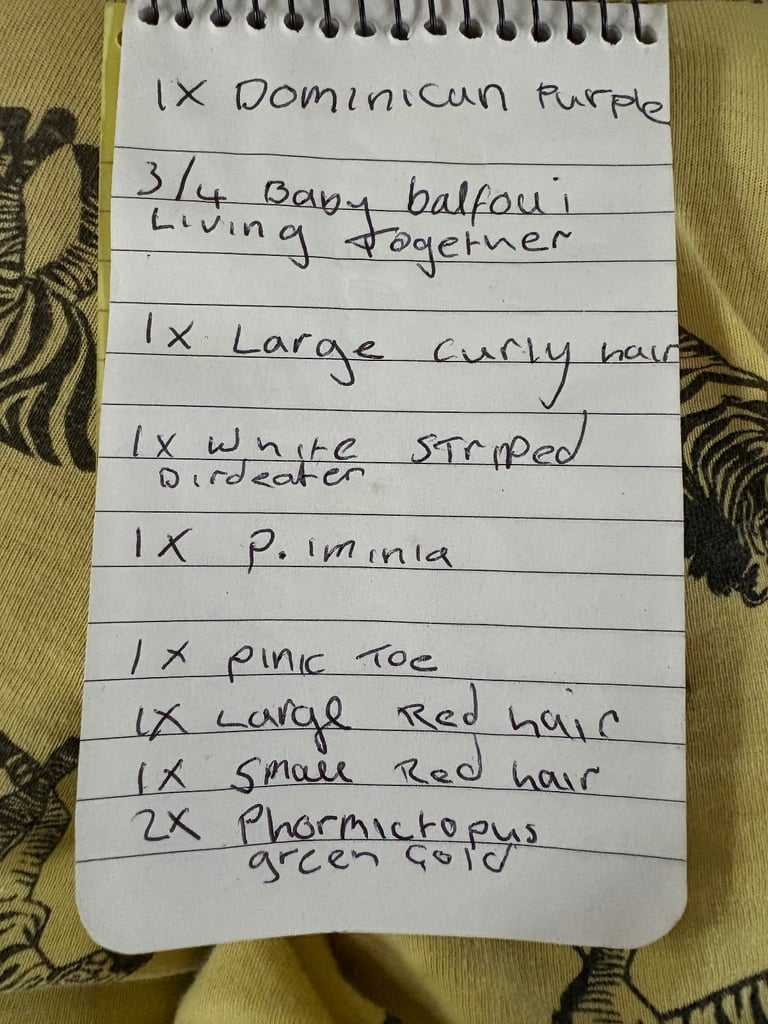 1X Dominican Purple
3/4 Baby balfoui
Living together
1X Large curly hair
1X White Stripped
Birdeater
1X P. iminia
1X Pink Toe
1X Large Red hair
1X Small Red hair
2X Phormictopus
green Gold